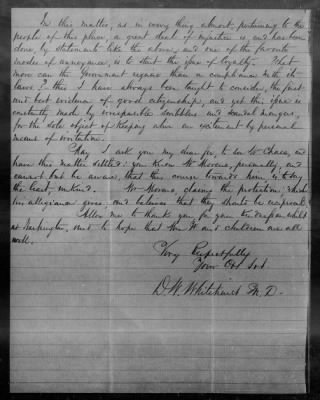 In this matter, as in every thing almost, pertaining to the
people of this place, a great deal of injustice is, and has been
done, by statements like the above, and one of the favorite
modes of annoyance, is to start the of loyalty. What
more can the Government require than a compliance with its
laws? — this I have always been taught to consider, the first
and best evidence of good citizenship, and yet this is
constantly made by irresponsible scribblers and scandal mongers,
for the sole object of keeping up an excitement by personal
means of irritation.
May I ask you my dear Sir, to see Mr Chase, and
have this matter settled? you know Mr Moreno, personally, and
cannot but be aware, that this course towards him, is to say
the least, unkind. Mr Moreno, claims the protection, which
his allegiance gives, and believes that they should be reciprocal.
Allow me to thank you for your kindness whilst
at Washington, and to hope that Mrs. and children are all
well.
Very Respectfully
Your Obt Svt
D. W. Whitehurst M. D.